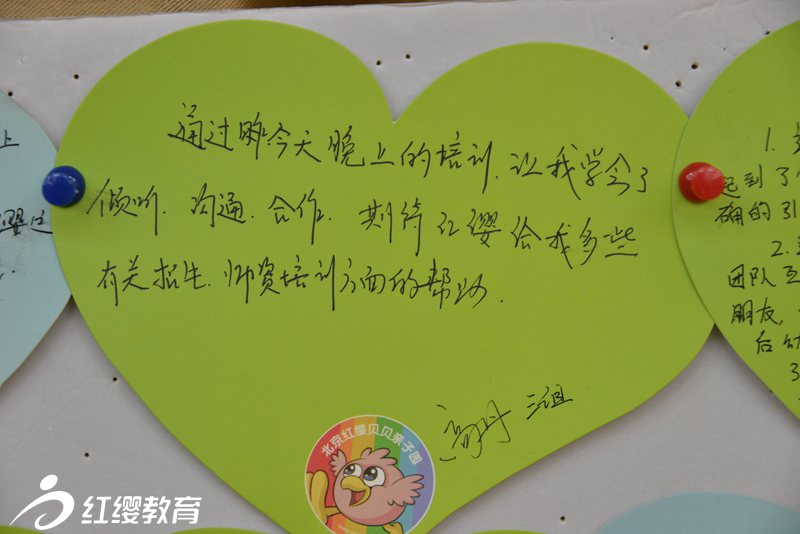 通过昨今天晚上的培训.让我学会了
倾听.沟通.合作.期待红缨给我多些
有关招生.师资培训方面的帮助.
三组
北京红缨贝贝亲子园
红缨教育
上
1.
起到了
确的引
2.
团队互
朋友,
后
3